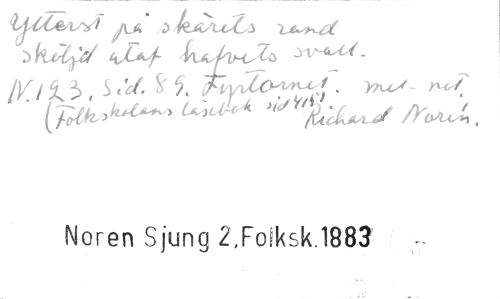 Ytterst på skärets rand
sköljd utaf hafvets svall.
N. 123. Sid. 89. Fyrtornet. met. not.
(Folkskolans läsebok sid 415!
Richard Norén.
Noren Sjung 2, Folksk. 1883